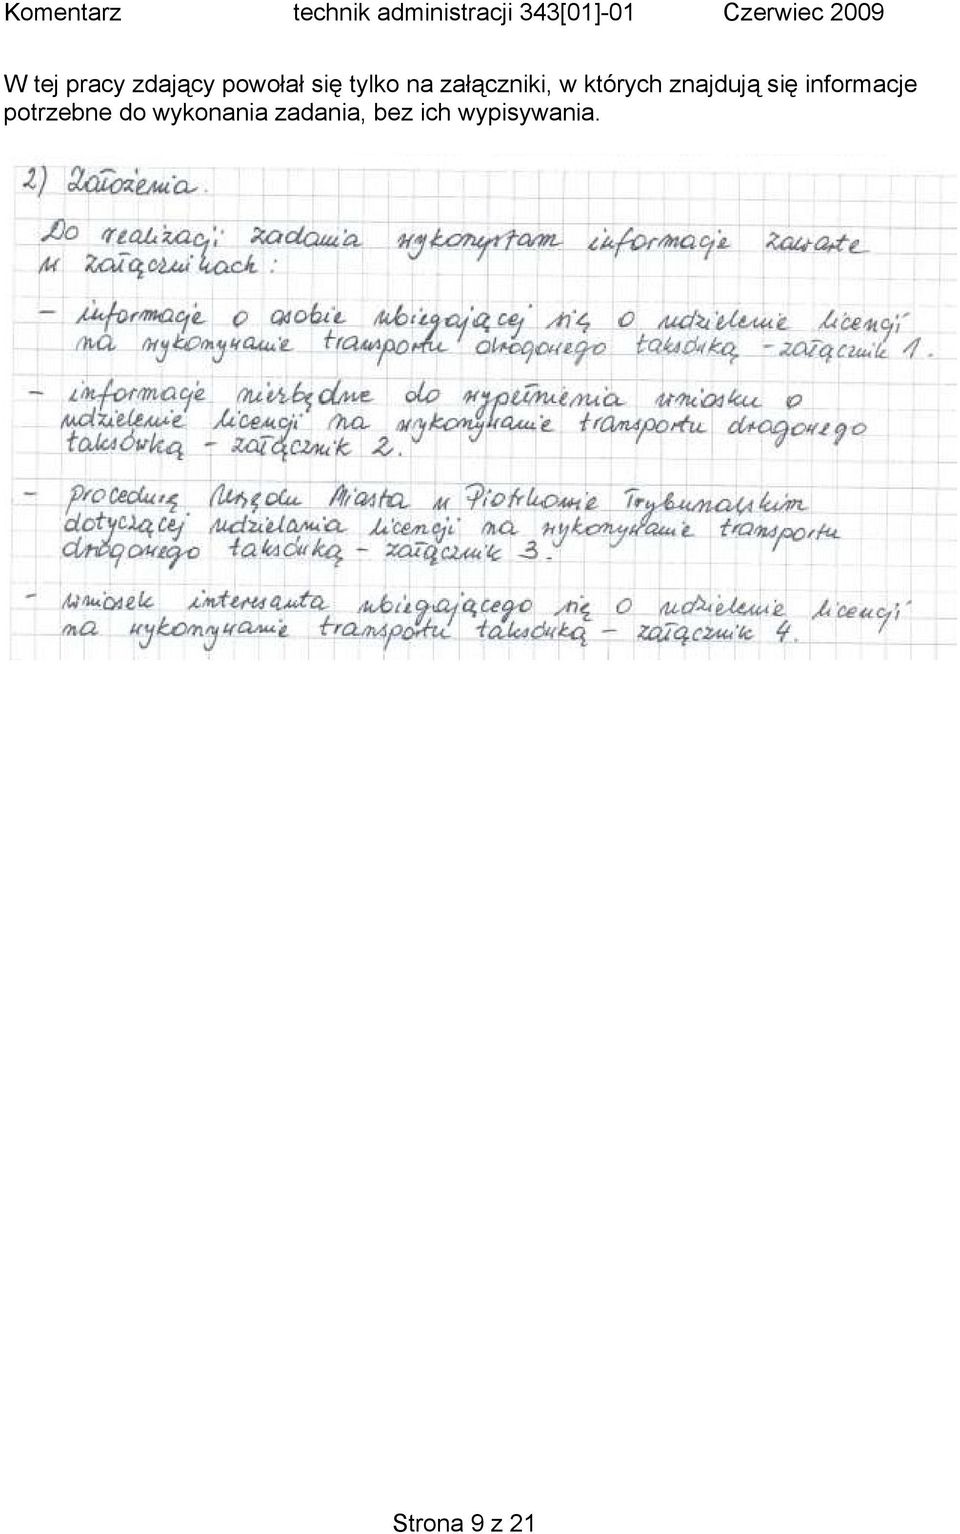 Komentarz technik administracji 343[01]-01 Czerwiec 2009
W tej pracy zdający powołał się tylko na załączniki, w których znajdują się informacje
potrzebne do wykonania zadania, bez ich wypisywania.
2) Założenia.
Do realizacji zadania wykorzystam informacje zawarte
w załącznikach :
- informacje o osobie ubiegającej się o udzielenie licencji
na wykonywanie transportu drogowego taksówką - załącznik 1.
- informacje niezbędne do wypełnienia wniosku o
udzielenie licencji na wykonywanie transportu drogowego
taksówką - załącznik 2.
- procedurę Urzędu Miasta w Piotrkowie Trybunalskim
dotyczącej udzielania licencji na wykonywanie transportu
drogowego taksówką - załącznik 3.
- wniosek interesanta ubiegającego się o udzielenie licencji
na wykonywanie transportu taksówką - załącznik 4.
Strona 9 z 21